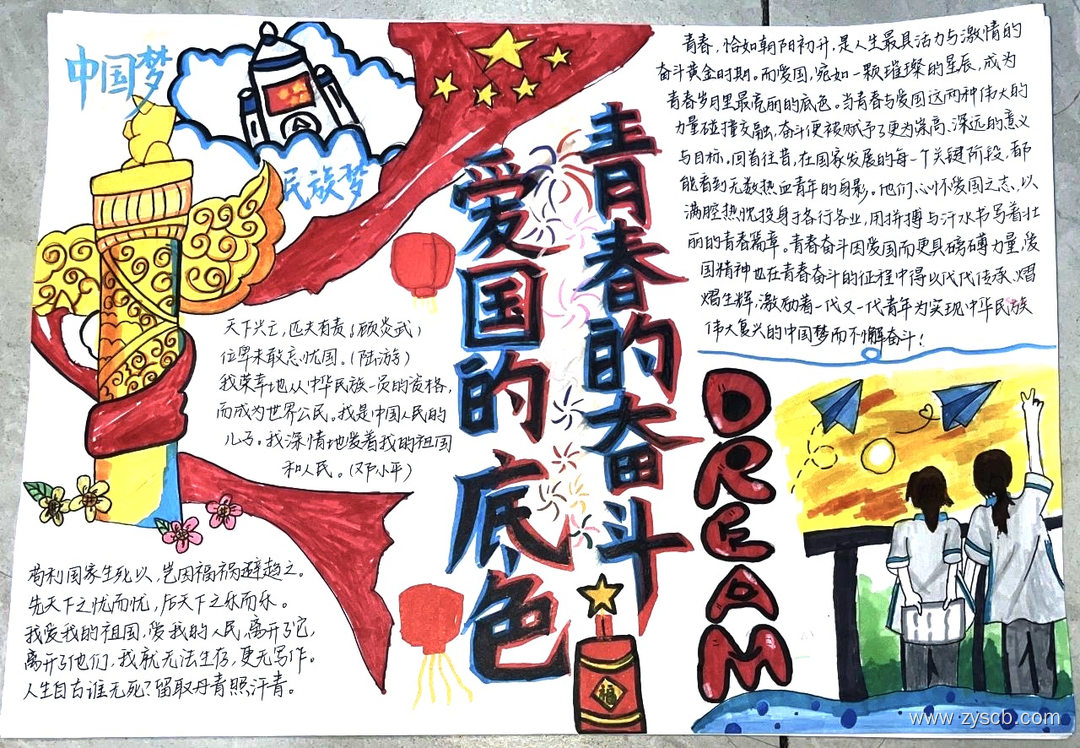 中国梦
民族梦
青春的奋斗
爱国的底色
青春，恰如朝阳初升，是人生最具活力与激情的
奋斗黄金时期。而爱国，宛如一颗璀璨的星辰，成为
青春岁月里最亮丽的底色。当青春与爱国这两种伟大的
力量碰撞交融，奋斗便被赋予了更为崇高、深远的意义
与目标。回首往昔，在国家发展的每一个关键阶段，都
能看到无数热血青年的身影。他们心怀爱国之志，以
满腔热忱投身于各行各业，用拼搏与汗水书写着壮
丽的青春篇章。青春奋斗因爱国而更具磅礴力量，爱
国精神也在青春奋斗的征程中得以代代传承、熠
熠生辉，激励着一代又一代青年为实现中华民族
伟大复兴的中国梦而不懈奋斗！
天下兴亡，匹夫有责（顾炎武）
位卑未敢忘忧国。（陆游）
我荣幸地从中华民族一员的资格，
而成为世界公民。我是中国人民的
儿子。我深情地爱着我的祖国
和人民。（邓小平）
苟利国家生死以，岂因福祸避趋之。
先天下之忧而忧，后天下之乐而乐。
我爱我的祖国，爱我的人民，离开了它，
离开了他们，我就无法生存，更无写作。
人生自古谁无死？留取丹青照汗青。
DREAM
福
www.zyscb.com